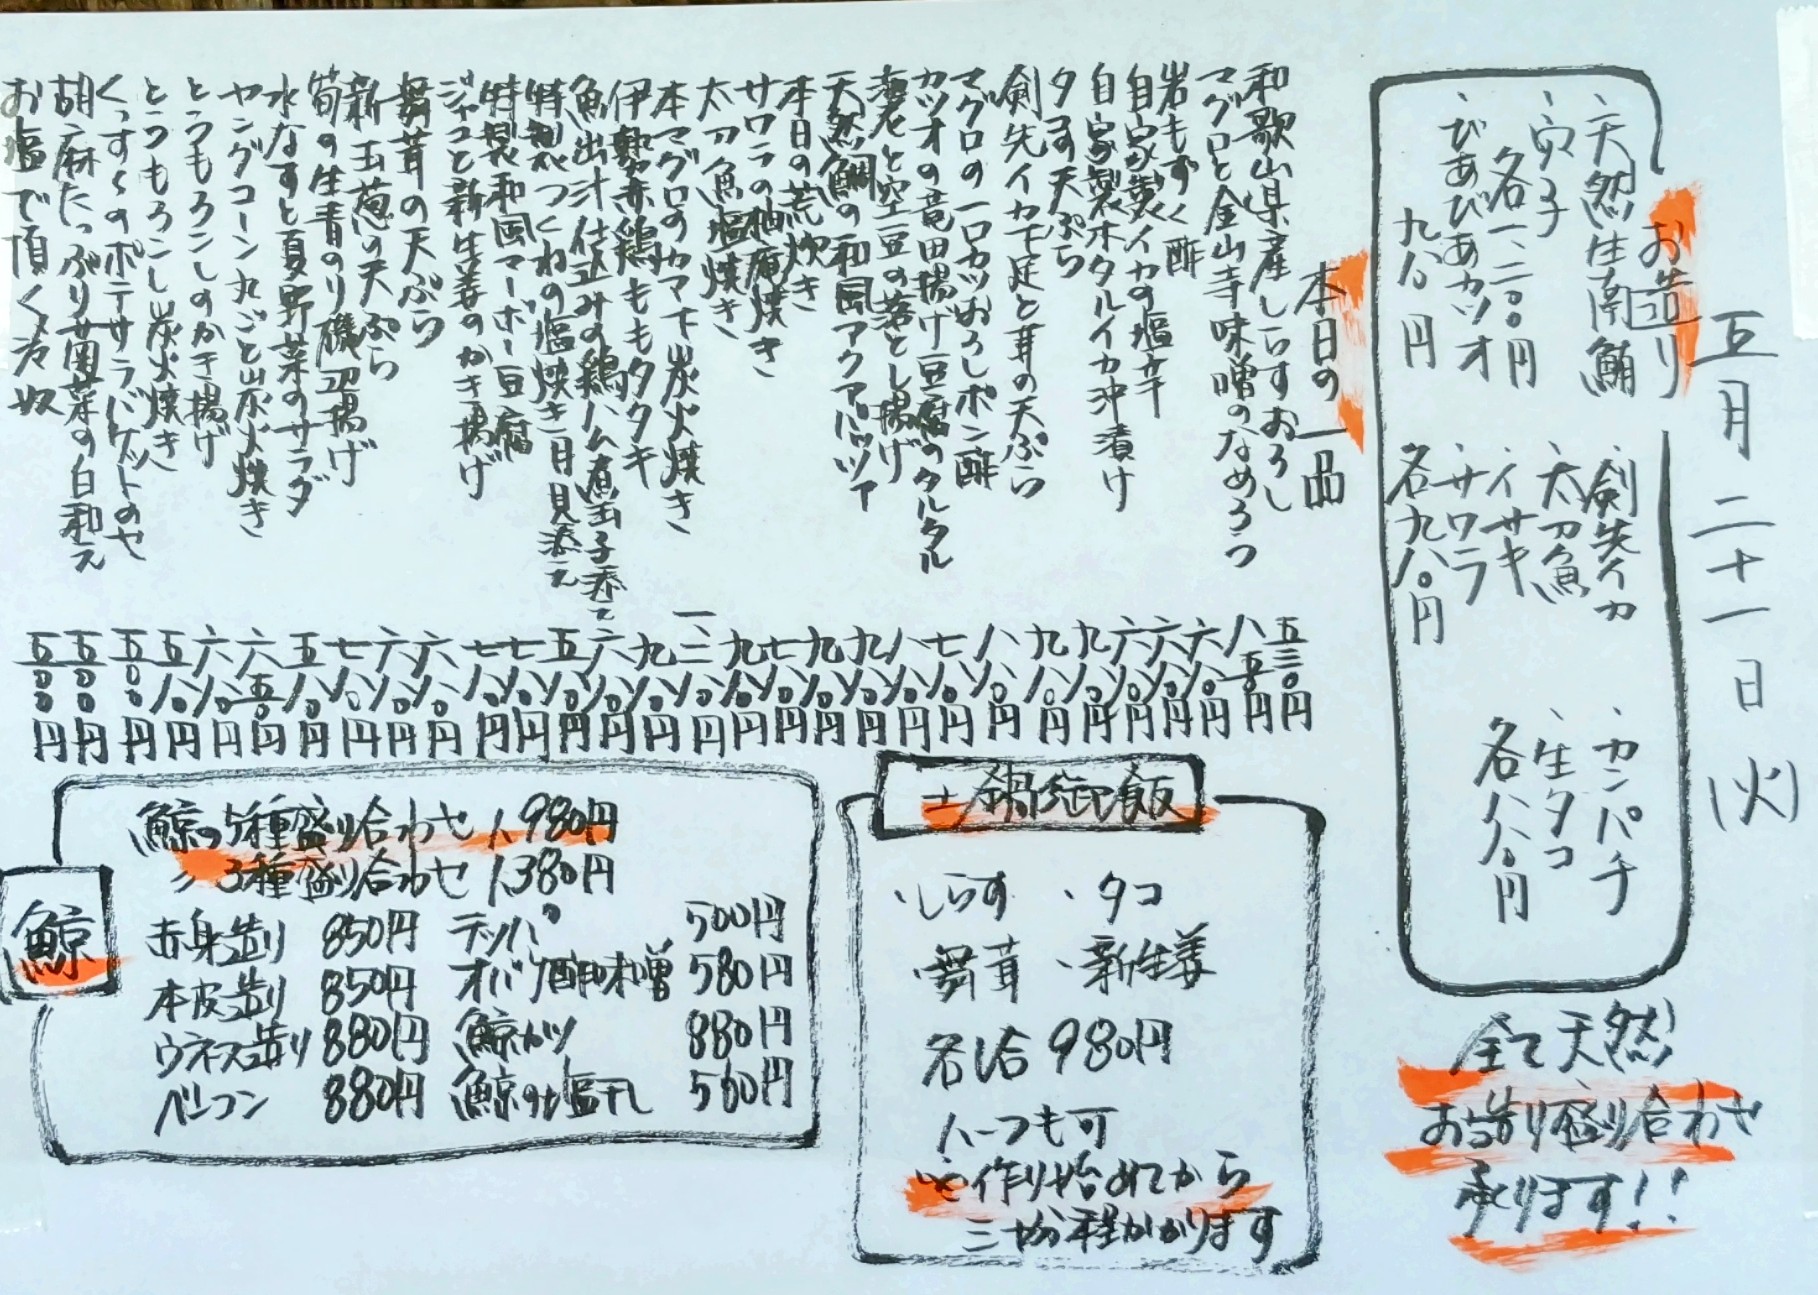 五月二十一日(火)
お造り
・天然生南鮪
・穴子
各一、二〇〇円
・びあびあカツオ
九八〇円
・剣先イカ
・太刀魚
・イサキ
・サワラ
各九八〇円
・カンパチ
・生タコ
各八八〇円
全て天然
お造り盛り合わせ
承ります!!
本日の一品
和歌山県産しらすおろし 五三〇円
マグロと金山寺味噌のなめろう 八五〇円
岩もずく酢 六八〇円
自家製イカの塩辛 六八〇円
自家製ホタルイカ沖漬け 六八〇円
タコ天ぷら 九八〇円
剣先イカ下足と茸の天ぷら 九八〇円
マグロの一口カツおろしポン酢 八八〇円
カツオの竜田揚げ豆腐のタルタル 七八〇円
海老と空豆の落とし揚げ 八八〇円
天然鯛の和風アクアパッツァ 九八〇円
本日の荒炊き 九八〇円
サワラの柚庵焼き 七八〇円
太刀魚塩焼き 九八〇円
本マグロのカマ下炭火焼き 一、二八〇円
伊勢赤鶏ももタタキ 九八〇円
魚出汁仕込みの鶏ハム煮玉子添え 六八〇円
特製つくねの塩焼き月見添え 五八〇円
特製和風マーボー豆腐 七八〇円
ジャコと新生姜のかき揚げ 七八〇円
舞茸の天ぷら 六八〇円
新玉葱の天ぷら 六八〇円
筍の生青のり磯辺揚げ 七八〇円
水なすと夏野菜のサラダ 五八〇円
ヤングコーン丸ごと炭火焼き 六五〇円
とうもろこしのかき揚げ 六八〇円
とうもろこし炭火焼き 五八〇円
くっすくのポテサラバゲットのせ 五〇〇円
胡麻たっぷり青菜の白和え 五〇〇円
お塩で頂く冷奴 五〇〇円
土鍋御飯
・しらす ・タコ
・舞茸 ・新生姜
各1合 980円
ハーフも可
※作り始めてから
三十分程かかります
鯨
鯨の5種盛り合わせ 1,980円
〃 3種盛り合わせ 1,380円
赤身造り 850円 テッパ 500円
本皮造り 850円 オバケ酢味噌 580円
ウネス造り 880円 鯨カツ 880円
ベーコン 880円 鯨の塩干し 560円